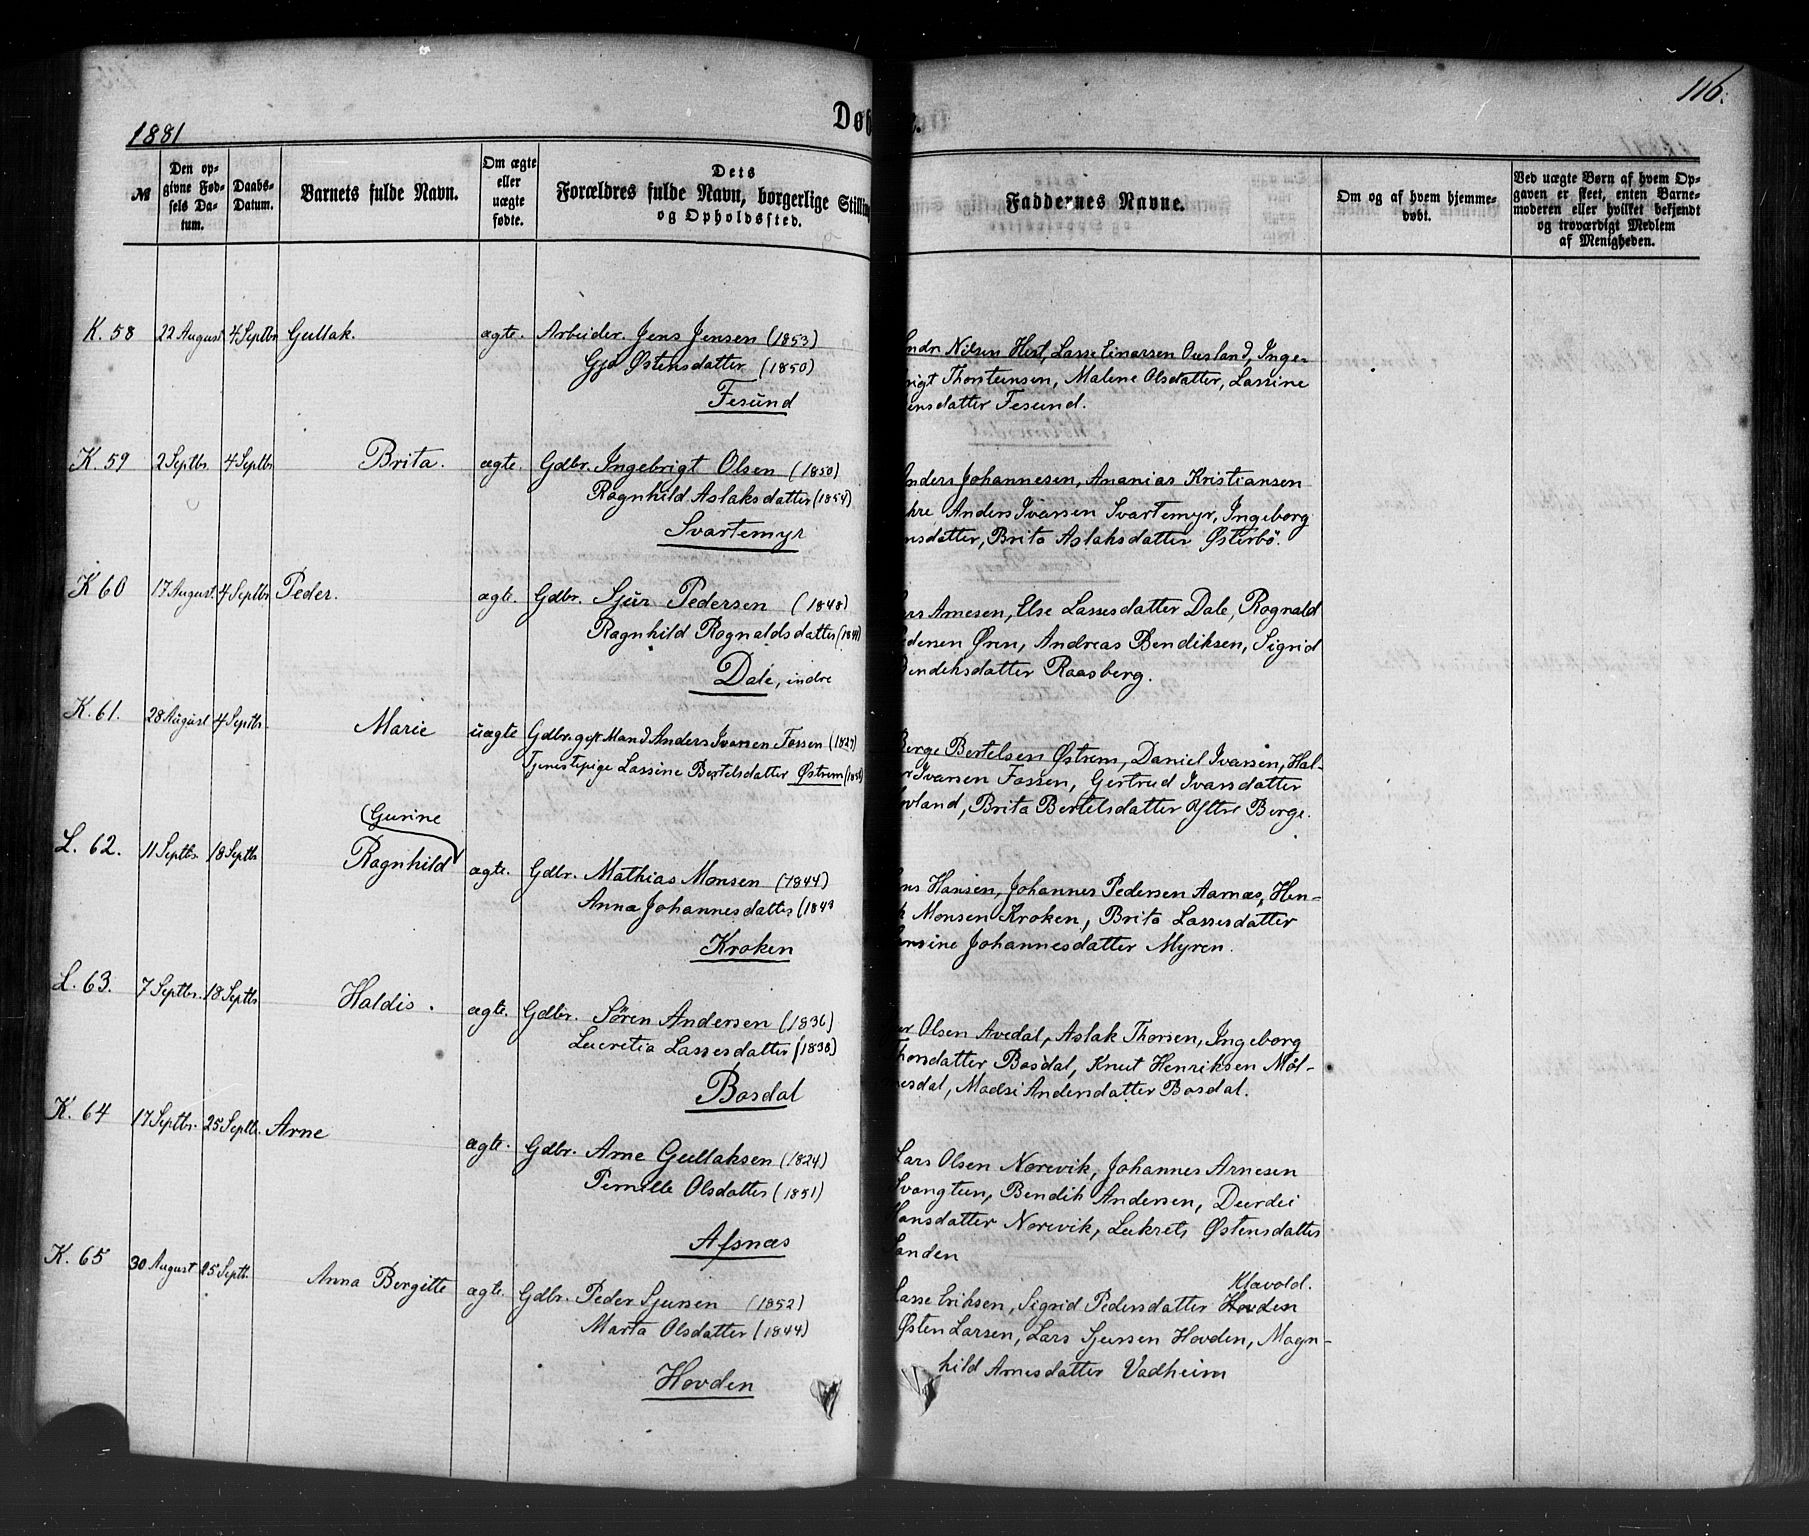 116.
1881
Døb
Nº
Den op-
givne Fød-
sels Da-
tum.
Daabs-
Datum.
Barnets fulde Navn.
Om ægte
eller
uægte
fødte.
Dets
Forældres fulde Navn, borgerlige Stillin
og Opholdssted.
Faddernes Navne.
Om og af hvem hjemme-
døbt.
Ved uægte Børn af hvem Op-
gaven er skeet, enten Barne-
moderen eller hvilket bekjendt
og troværdigt Medlem
af Menigheden.
K. 58 22 August 4 Septbr Gullak. ægte. Arbeider. Jens Jensen (1853)
Gjd Østensdatter (1850)
Fesund
Nilsen Hest, Lasse Einarsen Ousland, Inge-
rigt Thorsteinsen, Malene Olsdatter, Lassine
ensdatter Fesund.
K. 59 2 Septbr. 4 Septbr Brita. ægte. Gdbr. Ingebrigt Olsen (1850)
Ragnhild Aslaksdatter (1854)
Svartemyr
Anders Johannesen, Ananias Kristiansen
Anders Ivarsen Svartemyr, Ingeborg
nsdatter, Brita Aslaksdatter Østerbö.
K 60 17 August. 4 Septbr Peder. ægte. Gdbr. Sjur Pedersen (1848)
Ragnhild Rognaldsdatter
Dale, indre
Arnesen, Else Lassesdatter Dale, Rognald
edersen Øren, Andreas Bendiksen, Sigrid
Bendiksdatter Raasberg.
K. 61. 28 August 4 Septbr. Marie uægte Gdbr. gift Mand Anders Ivarsen Fossen (1827)
Tjenestepige Lassine Bertelsdatter Østrem
Børge Bertelsen Østrem, Daniel Ivarsen, Hal-
Ivarsen Fossen, Gertrud Ivarsdatter
vland, Brita Bertelsdatter Yttre Berge.
Gurine
L. 62. 11 Septbr. 18 Septbr Ragnhild ægte. Gdbr. Mathias Monsen (1844)
Anna Johannesdatter
Kroken
Hansen, Johannes Pedersen Aarnæs, Hen-
k Monsen Kroken, Brita Lassesdatter
Johannesdatter Myren.
L. 63. 7 Septbr. 18 Septbr Haldis. ægte. Gdbr. Sören Andersen (1836)
Lucretia Lassesdatter (1838)
Bosdal
Olsen Avedal, Aslak Thorsen, Ingeborg
Thorsdatter Bosdal, Knut Henriksen Möl-
mesdal, Madsi Andersdatter Bosdal.
K. 64 17 Septbr. 25 Septbr. Arne ægte. Gdbr. Arne Gullaksen (1824)
Pernille Olsdatter (1851)
Afsnæs
Lars Olsen Norevik, Johannes Arnesen
Svangtun, Bendik Andersen, Durdei
Hansdatter Norevik, Lukrets Østensdatter
Sanden
K. 65 30 August 25 Septbr. Anna Bergitte ægte. Gdbr. Peder Sjursen (1852)
Marta Olsdatter (1844)
Hovden
Klævold.
Lasse Eriksen, Sigrid Pedersdatter Hovden
Østen Larsen, Lars Sjursen Hovden, Magn-
hild Arnesdatter Vadheim